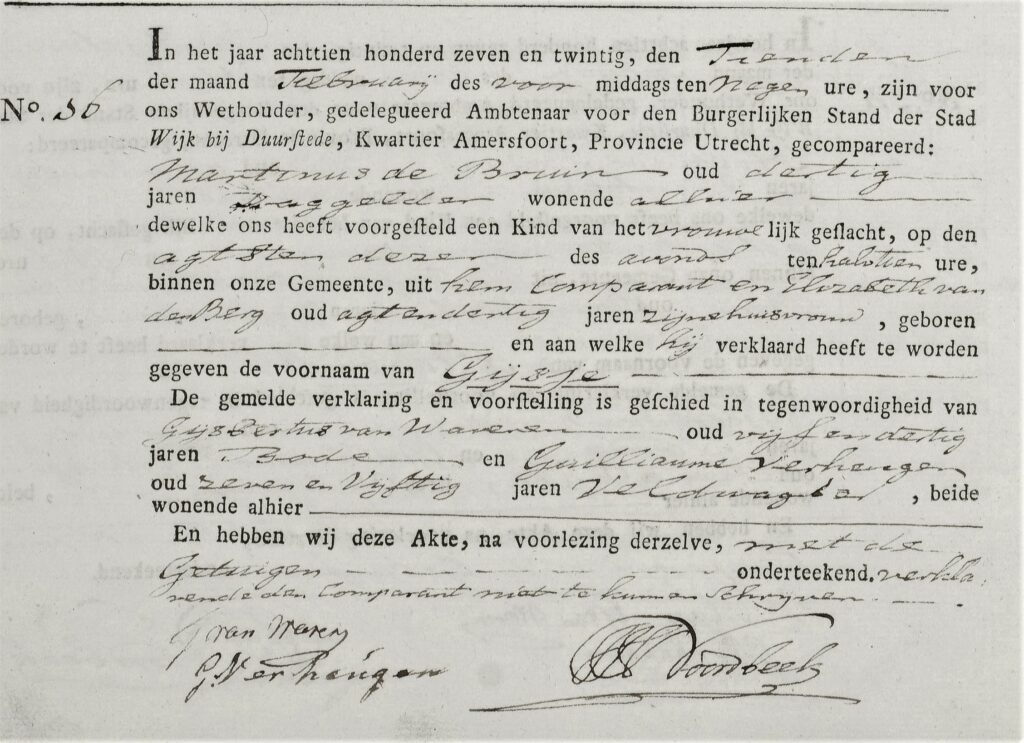 In het jaar achttien honderd zeven en twintig, den Tienden
der maand Februarij des voor middags ten Negen ure, zijn voor
No. 36 ons Wethouder, gedelegueerd Ambtenaar voor den Burgerlijken Stand der Stad
Wijk bij Duurstede, Kwartier Amersfoort, Provincie Utrecht, gecompareerd:
Martinus de Bruin oud dertig
jaren Baggelder wonende alhier
dewelke ons heeft voorgesteld een Kind van het vrouwelijk geslacht, op den
agtsten dezer des avonds ten halvtien ure,
binnen onze Gemeente, uit hem Comparant en Elizabeth van
den Berg oud agtendertig jaren zijne huisvrouw, geboren
en aan welke hij verklaard heeft te worden
gegeven de voornaam van Gijsje
De gemelde verklaring en voorstelling is geschied in tegenwoordigheid van
Gijsbertus van Waveren oud vijfendertig
jaren Bode en Guilliaume Verheugen
oud zeven en Vijftig jaren Veldwagter, beide
wonende alhier
En hebben wij deze Akte, na voorlezing derzelve, met de
Getuigen onderteekend. verkla
rende den Comparant niet te kunnen Schryven.
G van Waveren
G. Verheugen
Voordbeek